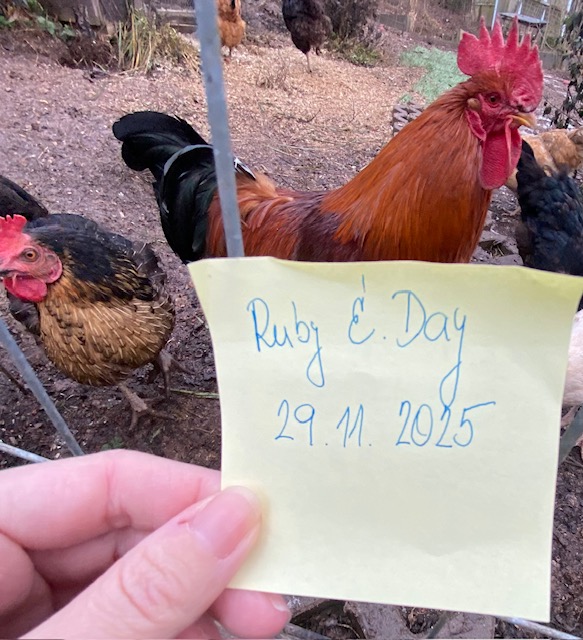 Ruby É. Day
29.11. 2025